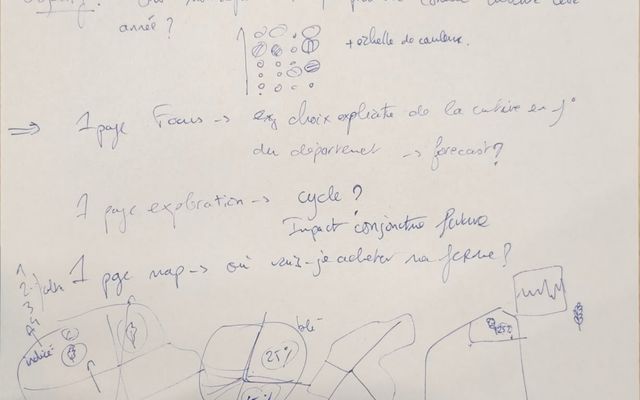 année ?
+ échelle de couleur.
⇒ 1 page Focus → ex choix explicite de la culture en f°
du département → forecast ?
1 page exploration → cycle ?
Impact conjoncture future
1 page map → où vais-je acheter ma ferme ?
1
2
3
blé
25%
25%